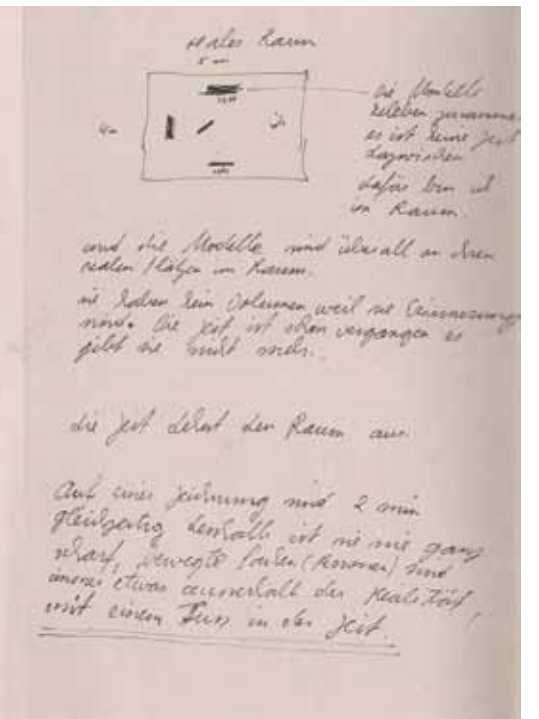 reales Raum
5 m
4 m
ich
die Modelle
kleben zusammen
es ist keine Zeit
dazwischen
dafür bin ich
im Raum.
und die Modelle sind überall an ihren
realen Plätzen im Raum.
sie haben kein Volumen weil sie Erinnerung
sind. Die Zeit ist schon vergangen es
gibt sie nicht mehr.
die Zeit dehnt den Raum aus.
Auf einer Zeichnung sind 2 min
gleichzeitig deshalb ist sie nie ganz
scharf, bewegte Sachen (Personen) sind
immer etwas ausserhalb der Realität,
mit einem Fuss in der Zeit.